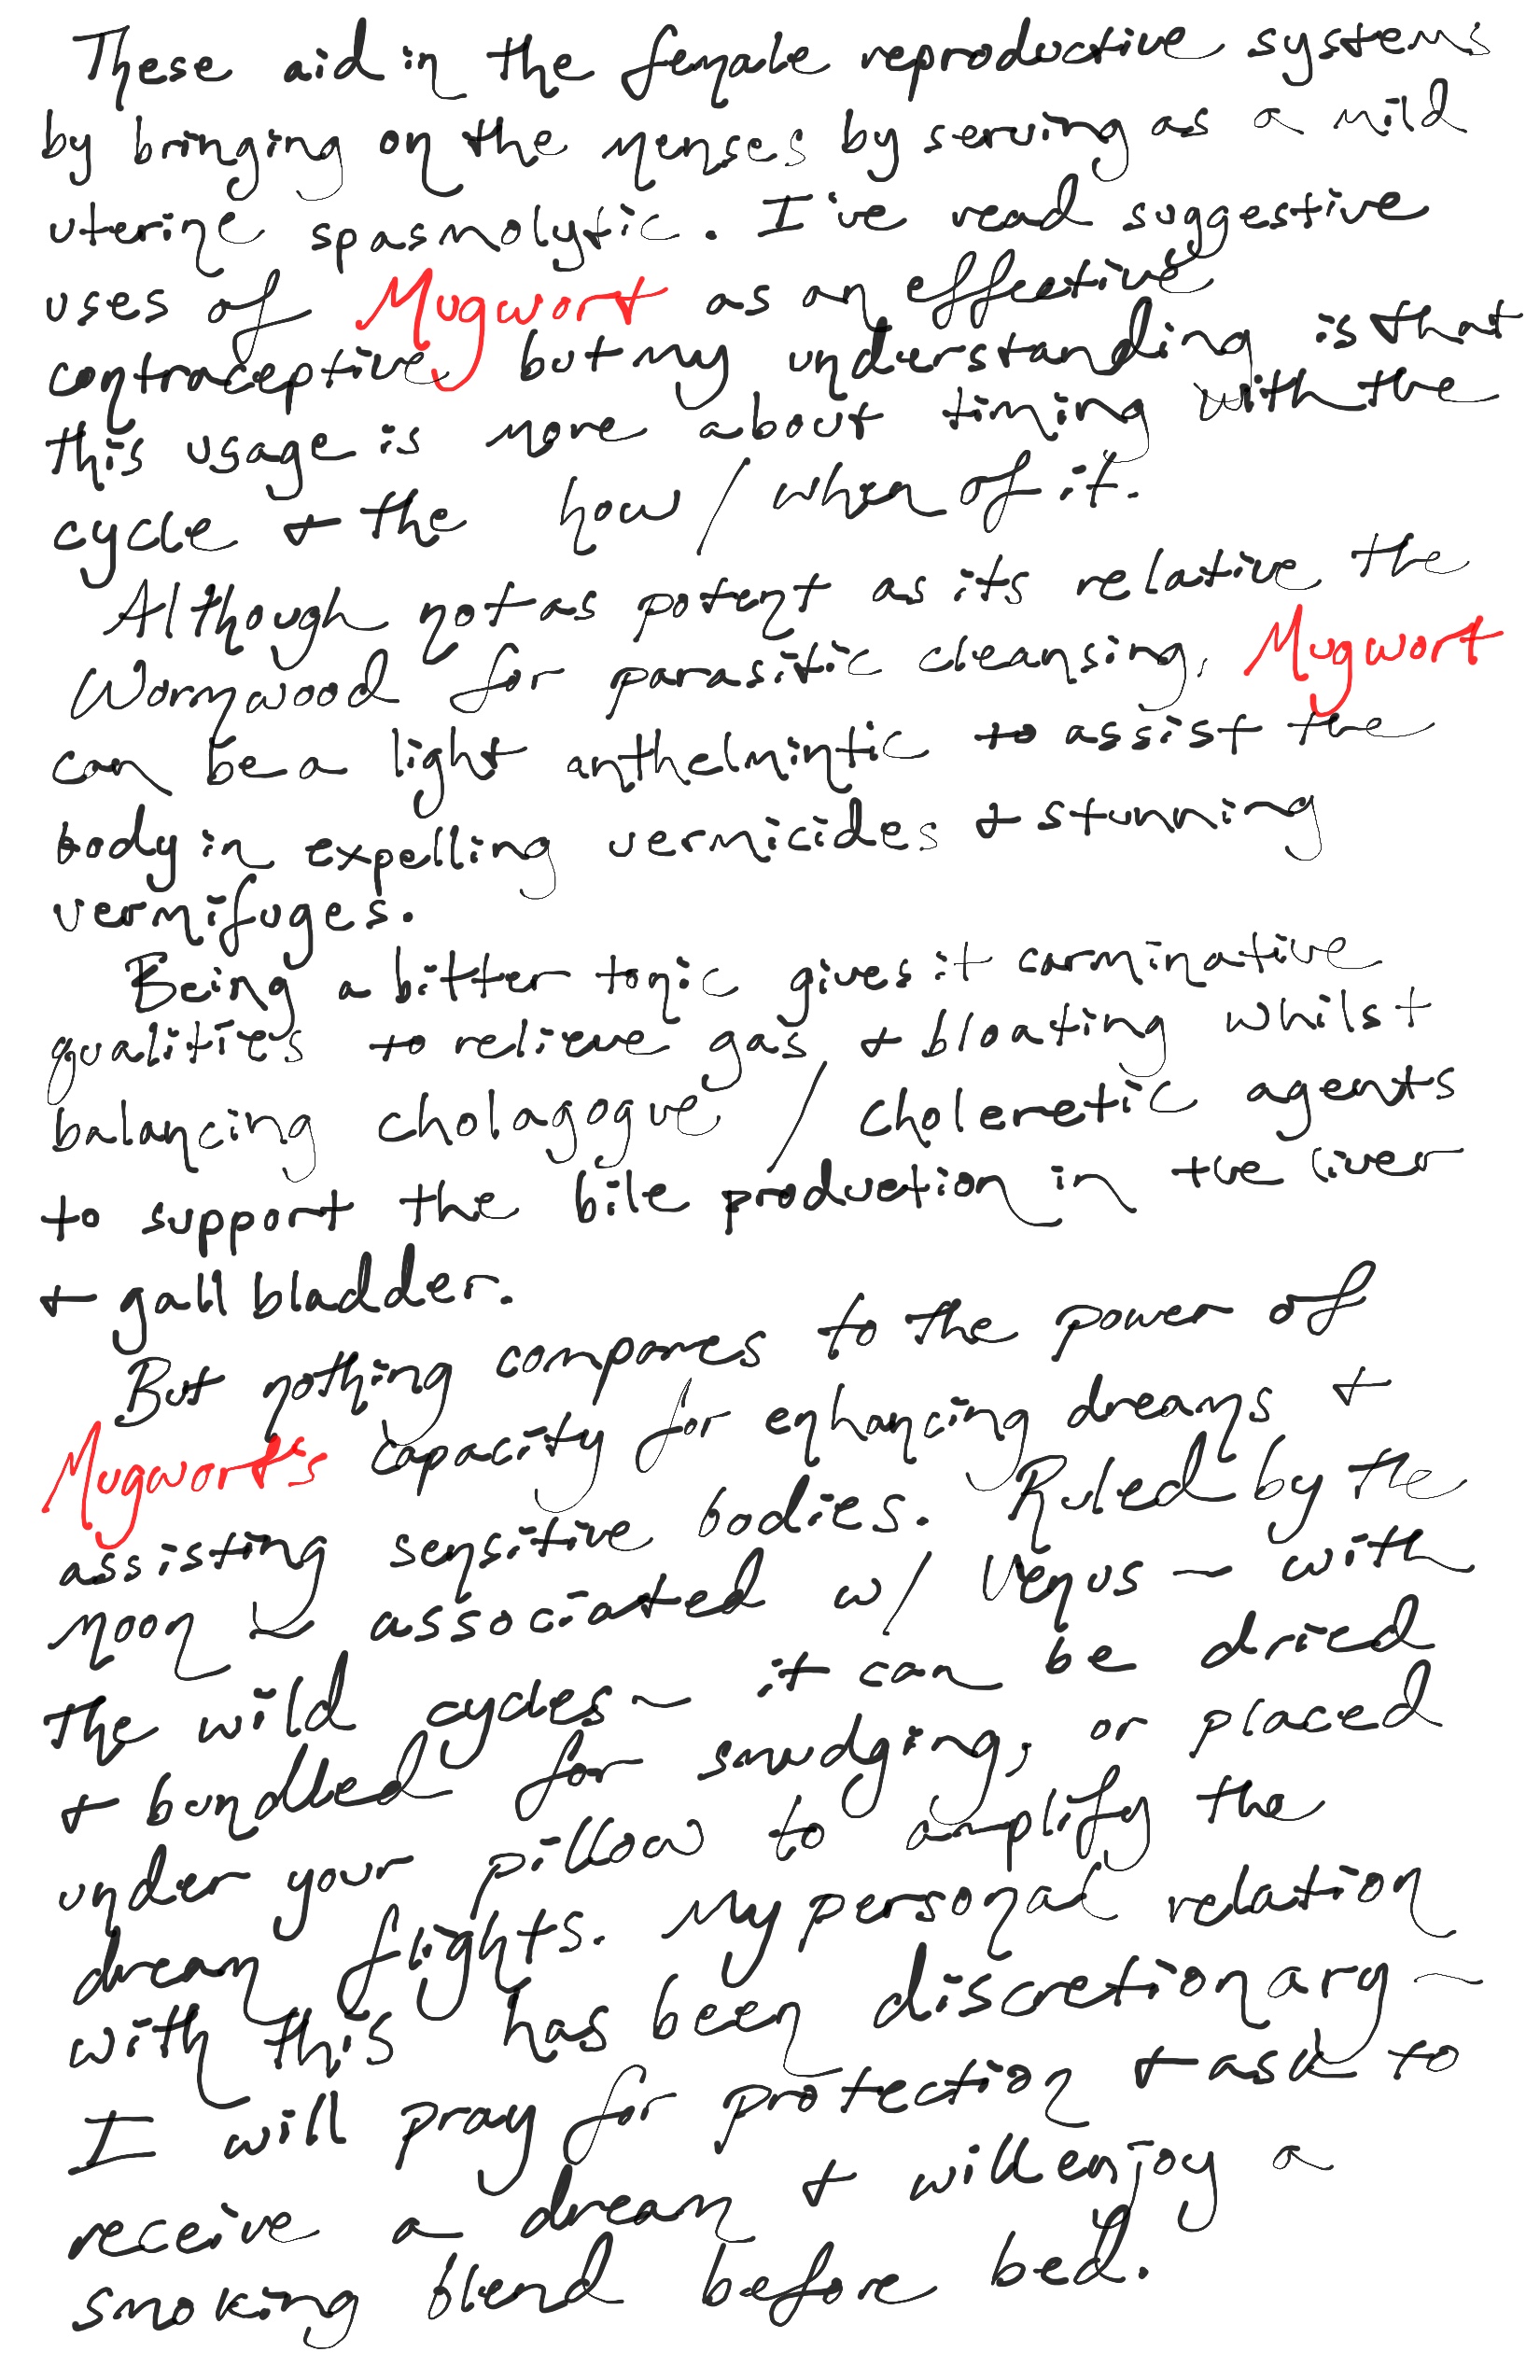 These aid in the female reproductive systems
by bringing on the menses by serving as a mild
uterine spasmolytic. I've read suggestive
uses of Mugwort as an effective
contraceptive but my understanding is that
this usage is more about timing with the
cycle + the how / when of it.
Although not as potent as its relative the
Wormwood for parasitic cleansing, Mugwort
can be a light anthelmintic to assist the
body in expelling vermicides + stunning
vermifuges.
Being a bitter tonic gives it carminative
qualities to relieve gas + bloating whilst
balancing cholagogue / choleretic agents
to support the bile production in the liver
+ gall bladder.
But nothing compares to the power of
Mugwort's capacity for enhancing dreams +
assisting sensitive bodies. Ruled by the
moon & associated w/ Venus ~ with
the wild cycles ~ it can be dried
+ bundled for smudging, or placed
under your pillow to amplify the
dream flights. My personal relation
with this has been discretionary ~
I will pray for protection + ask to
receive a dream + will enjoy a
smoking blend before bed.